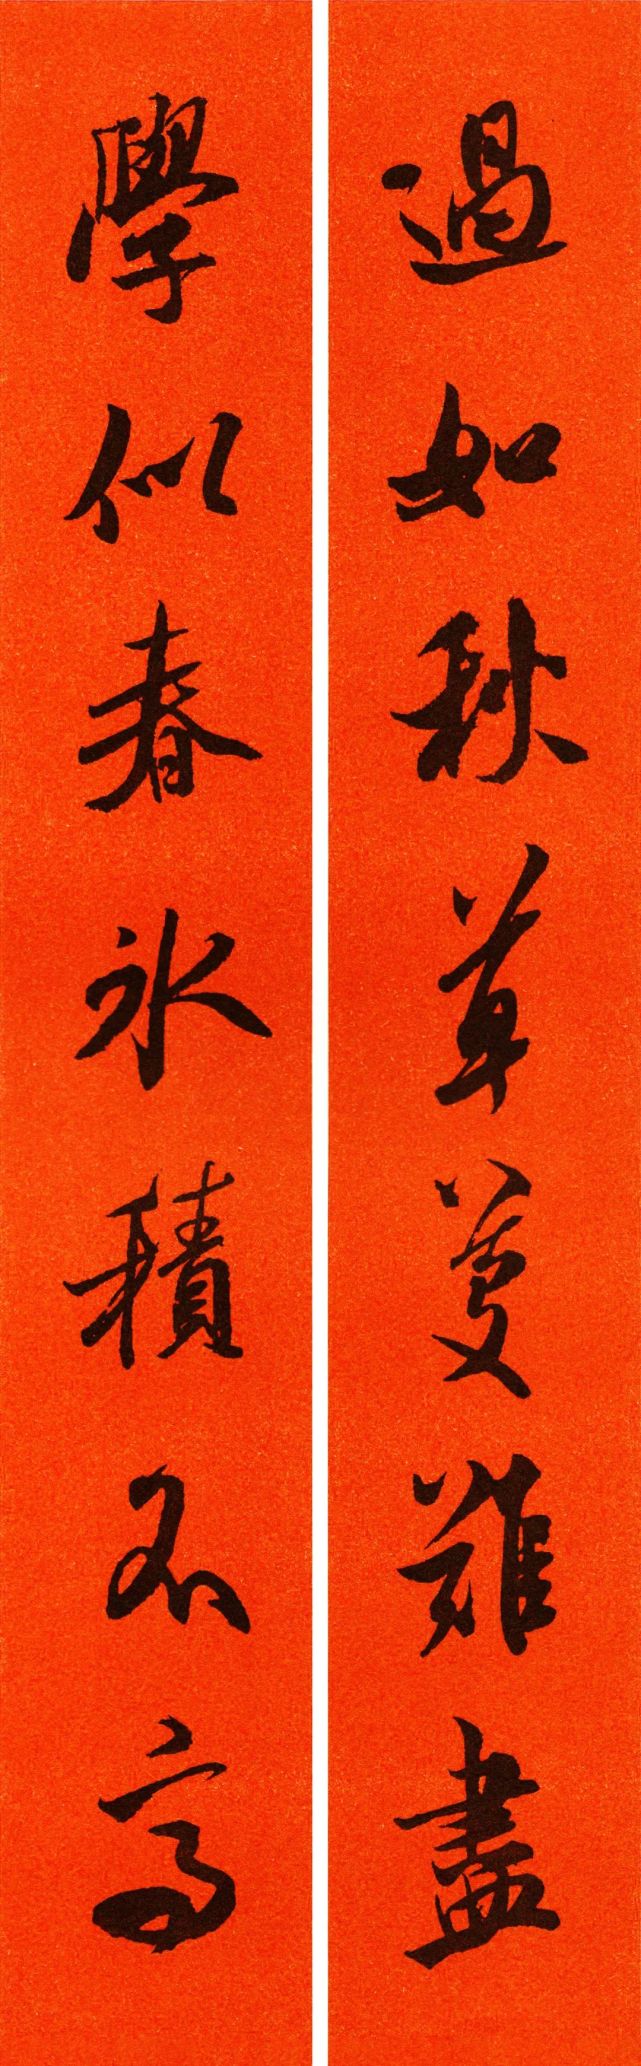 過如秋草蔓難盡
學似春冰積不高